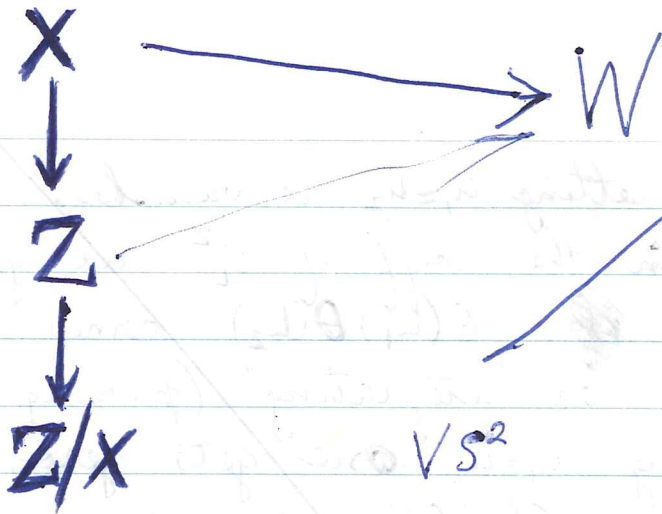 X W
Z
Z/X VS²